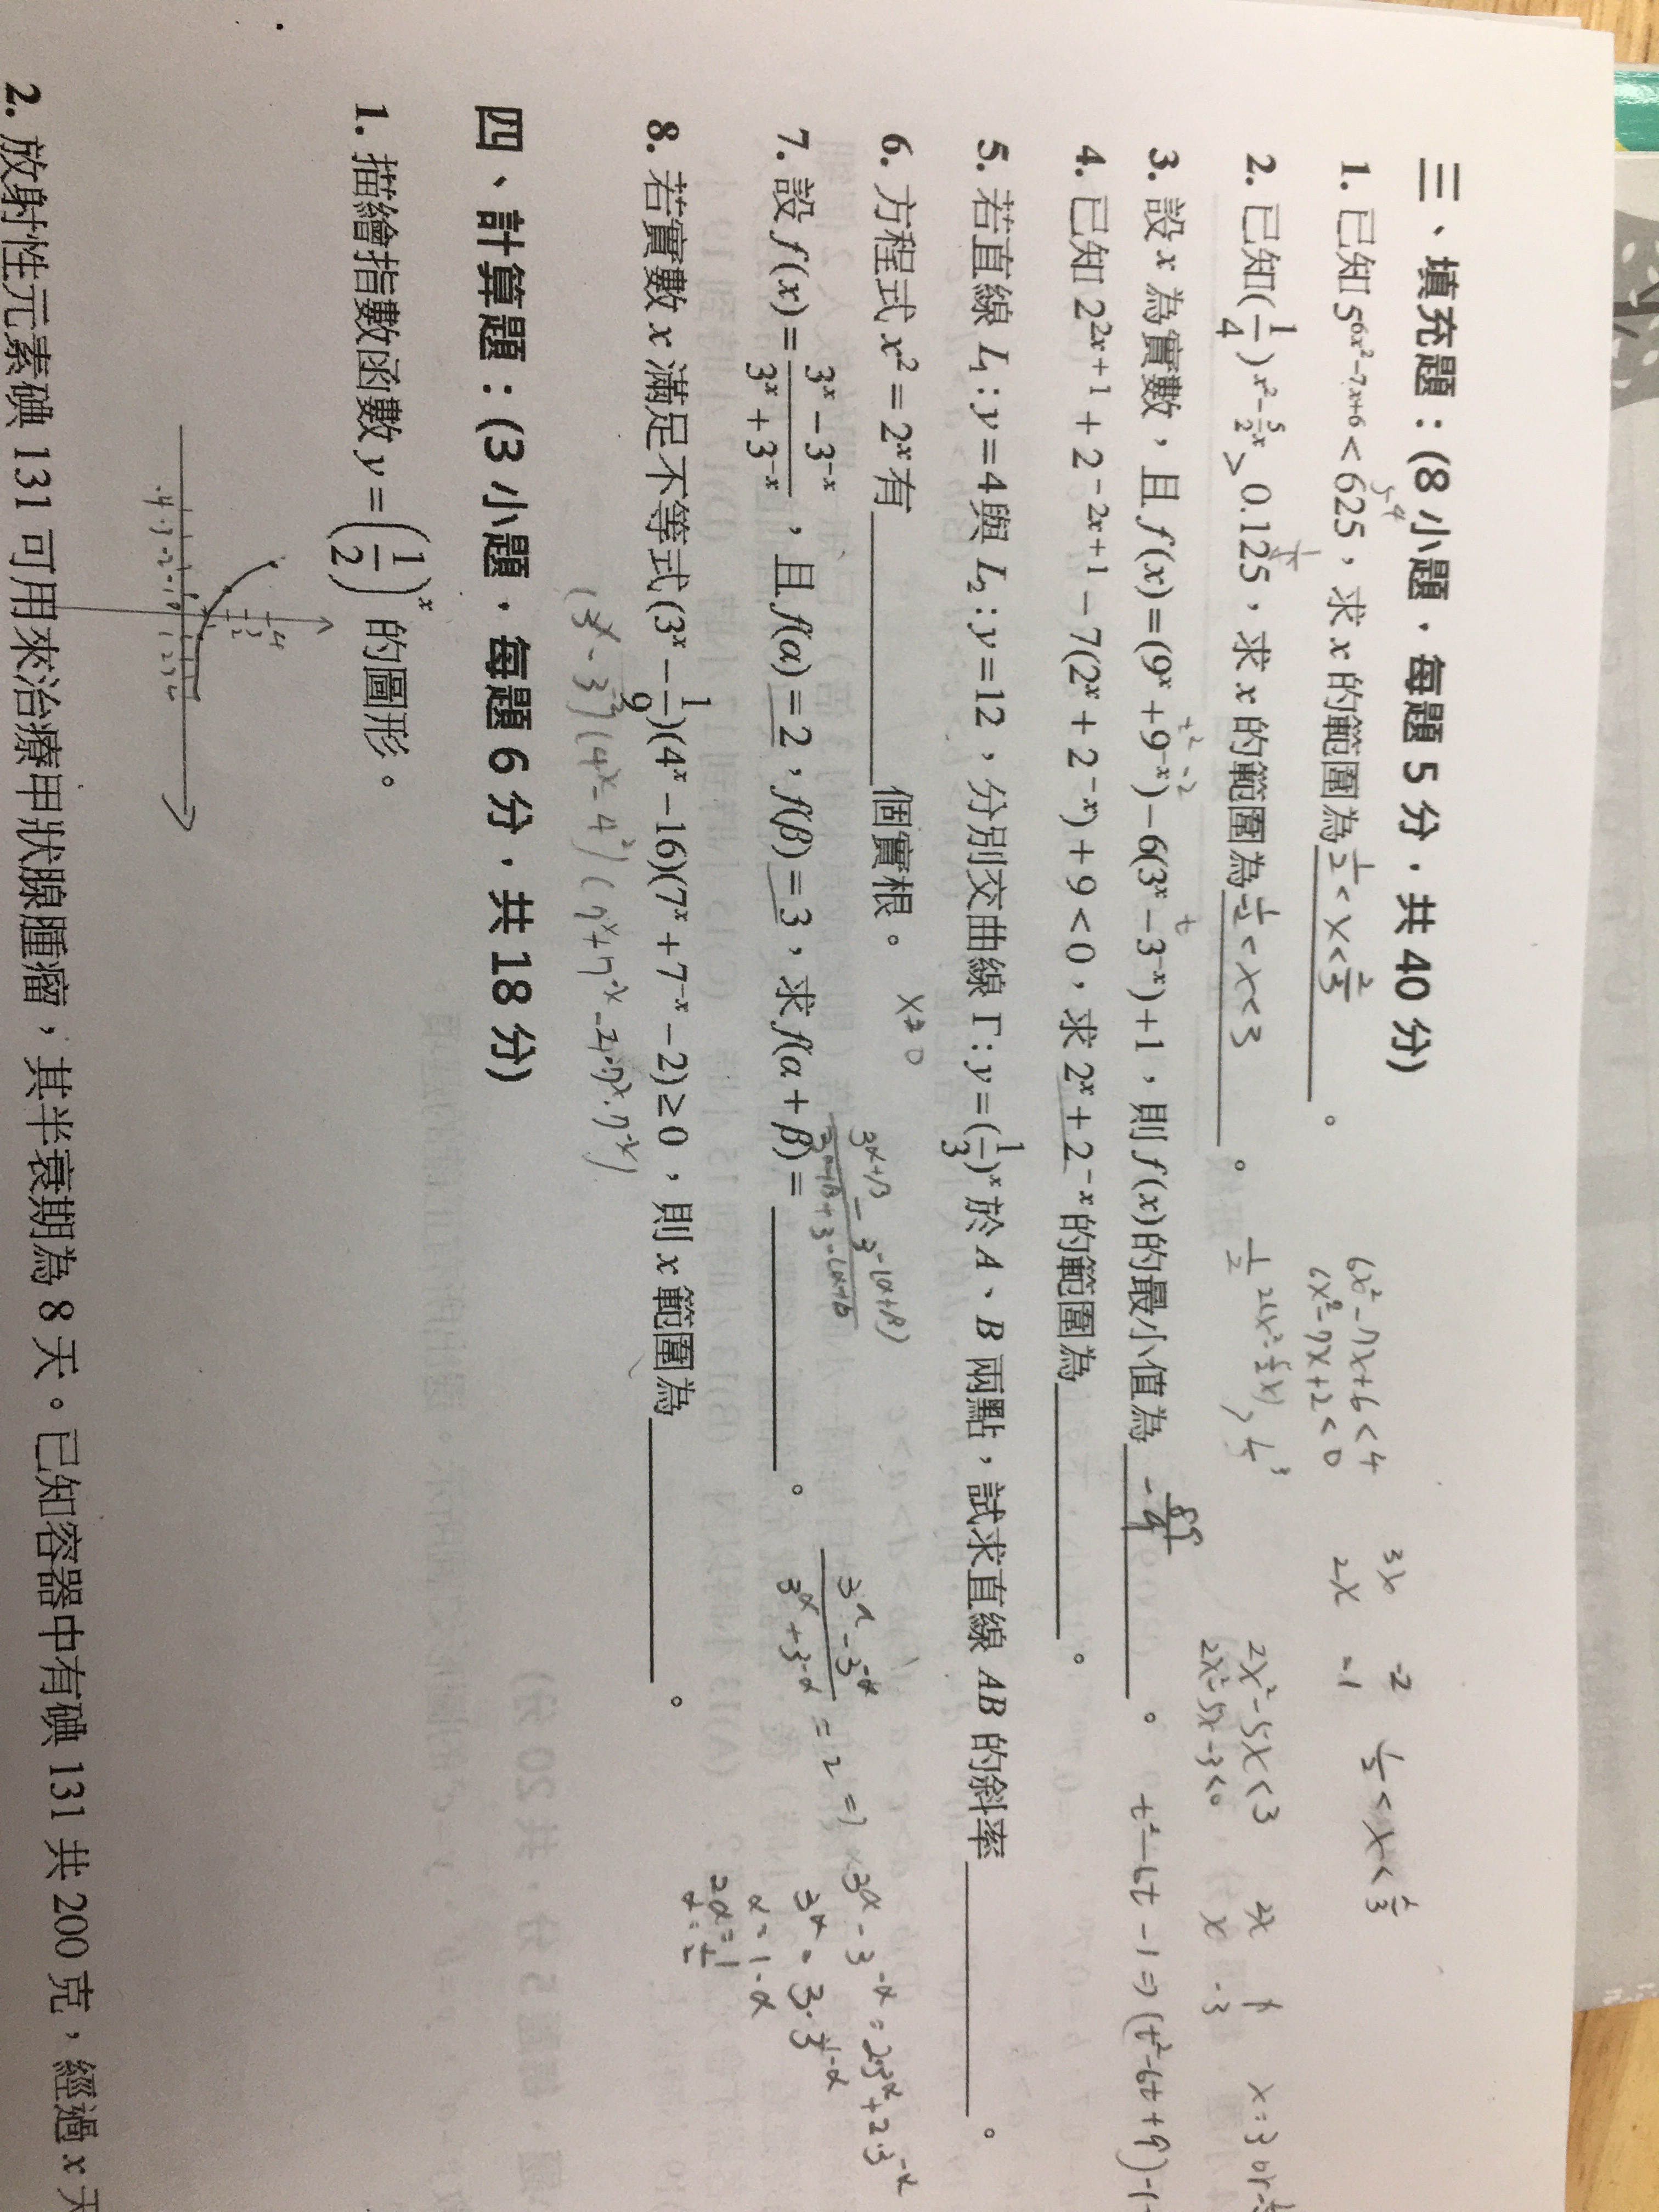 三、填充題：(8 小題．每題 5 分．共 40 分)
1. 已知 5^{6x²−7x+6} < 625，求 x 的範圍為 1/2 < x < 2/3 。
5^4
6x²-7x+6<4
6x²-7x+2<0
3x -2
2x -1
1/2 < x < 2/3
2. 已知(1/4)^{x²−(5/2)x} > 0.125，求 x 的範圍為 -1/2 < x < 3 。
2x²-5x<3
2x²-5x-3<0
2x 1
x -3
3. 設 x 為實數，且 f(x)=(9^x+9^{−x})−6(3^x−3^{−x})+1，則 f(x) 的最小值為 。
t
t²-6t-1⇒(t²-6t+9)-1
4. 已知 2^{2x+1}+2^{−2x+1}−7(2^x+2^{−x})+9<0，求 2^x+2^{−x} 的範圍為 。
5. 若直線 L₁:y=4與 L₂:y=12，分別交曲線 Γ:y=(1/3)^x 於 A、B 兩點，試求直線 AB 的斜率 。
6. 方程式 x²=2^x 有 個實根。
x≠0
7. 設 f(x)=(3^x−3^{−x})/(3^x+3^{−x})，且 f(α)=2，f(β)=3，求 f(α+β)= 。
(3^{α+β}-3^{-(α+β)})/(3^{α+β}+3^{-(α+β)})
(3^α-3^{-α})/(3^α+3^{-α})=2⇒
3^α-3^{-α}=2·3^α+2·3^{-α}
α=1-α
2α=1
α=1/2
8. 若實數 x 滿足不等式(3^x−1/9)(4^x−16)(7^x+7^{−x}−2)≥0，則 x 範圍為 。
四、計算題：(3 小題．每題 6 分．共 18 分)
1. 描繪指數函數 y=(1/2)^x 的圖形。
2. 放射性元素碘 131 可用來治療甲狀腺腫瘤，其半衰期為 8 天。已知容器中有碘 131 共 200 克，經過 x 天